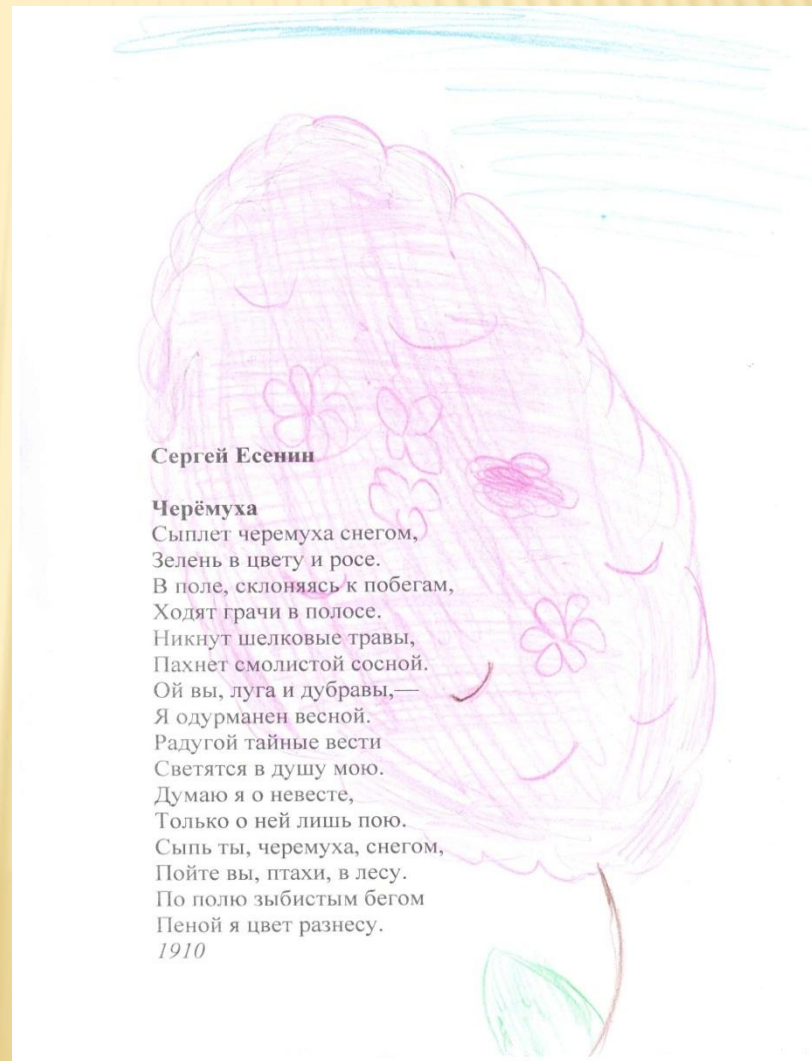 Сергей Есенин
Черёмуха
Сыплет черемуха снегом,
Зелень в цвету и росе.
В поле, склоняясь к побегам,
Ходят грачи в полосе.
Никнут шелковые травы,
Пахнет смолистой сосной.
Ой вы, луга и дубравы,—
Я одурманен весной.
Радугой тайные вести
Светятся в душу мою.
Думаю я о невесте,
Только о ней лишь пою.
Сыпь ты, черемуха, снегом,
Пойте вы, птахи, в лесу.
По полю зыбистым бегом
Пеной я цвет разнесу.
1910